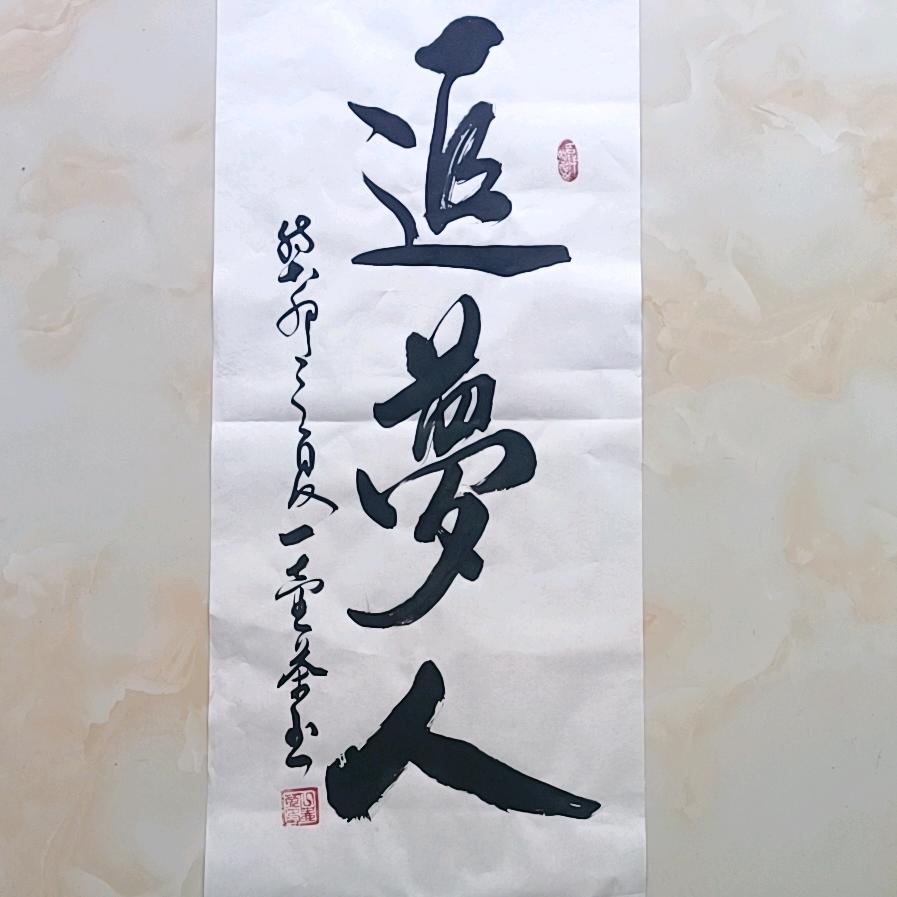 追夢人
癸卯之夏一壺茶